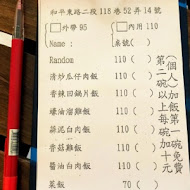 和平東路二段118巷52弄14號
□外帶95 □內用110
Name: 桌號( )
Random 110 ( )
清炒瓜仔肉飯 110 ( )
香辣回鍋片飯 110 ( )
蠔油溜雞飯 110 ( )
蒜泥白肉飯 110 ( )
香菇雞飯 110 ( )
醬油白肉飯 110 ( )
菜飯 70 ( )
(個人)加飯第一碗免費
第二碗以上每碗加十元